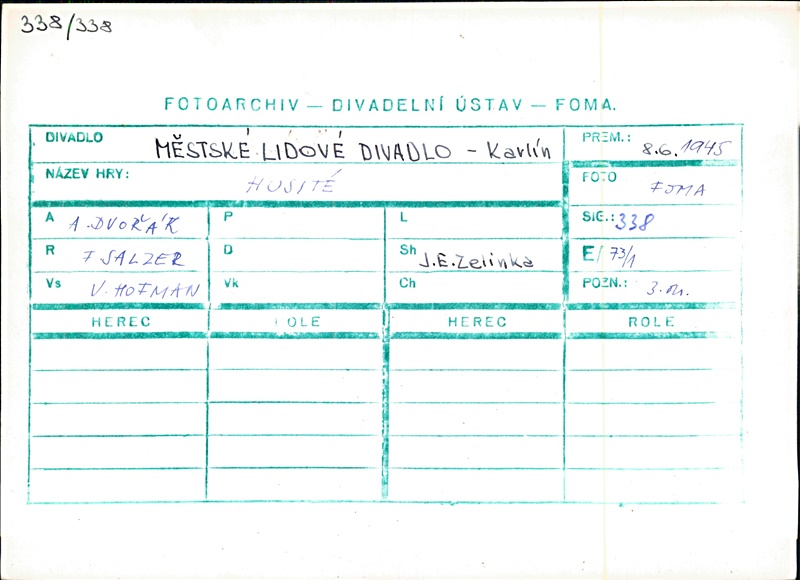 338/338
FOTOARCHIV — DIVADELNÍ ÚSTAV — FOMA.
DIVADLO MĚSTSKÉ LIDOVÉ DIVADLO - Karlín PREM.: 8.6.1945
NÁZEV HRY: HUSITÉ FOTO FOMA
A A. DVOŘÁK P L SIG.: 338
R F SALZER D Sh J.E.Zelinka E/ 73/1
Vs V. HOFMAN Vk Ch POZN.: 3.
HEREC ROLE HEREC ROLE